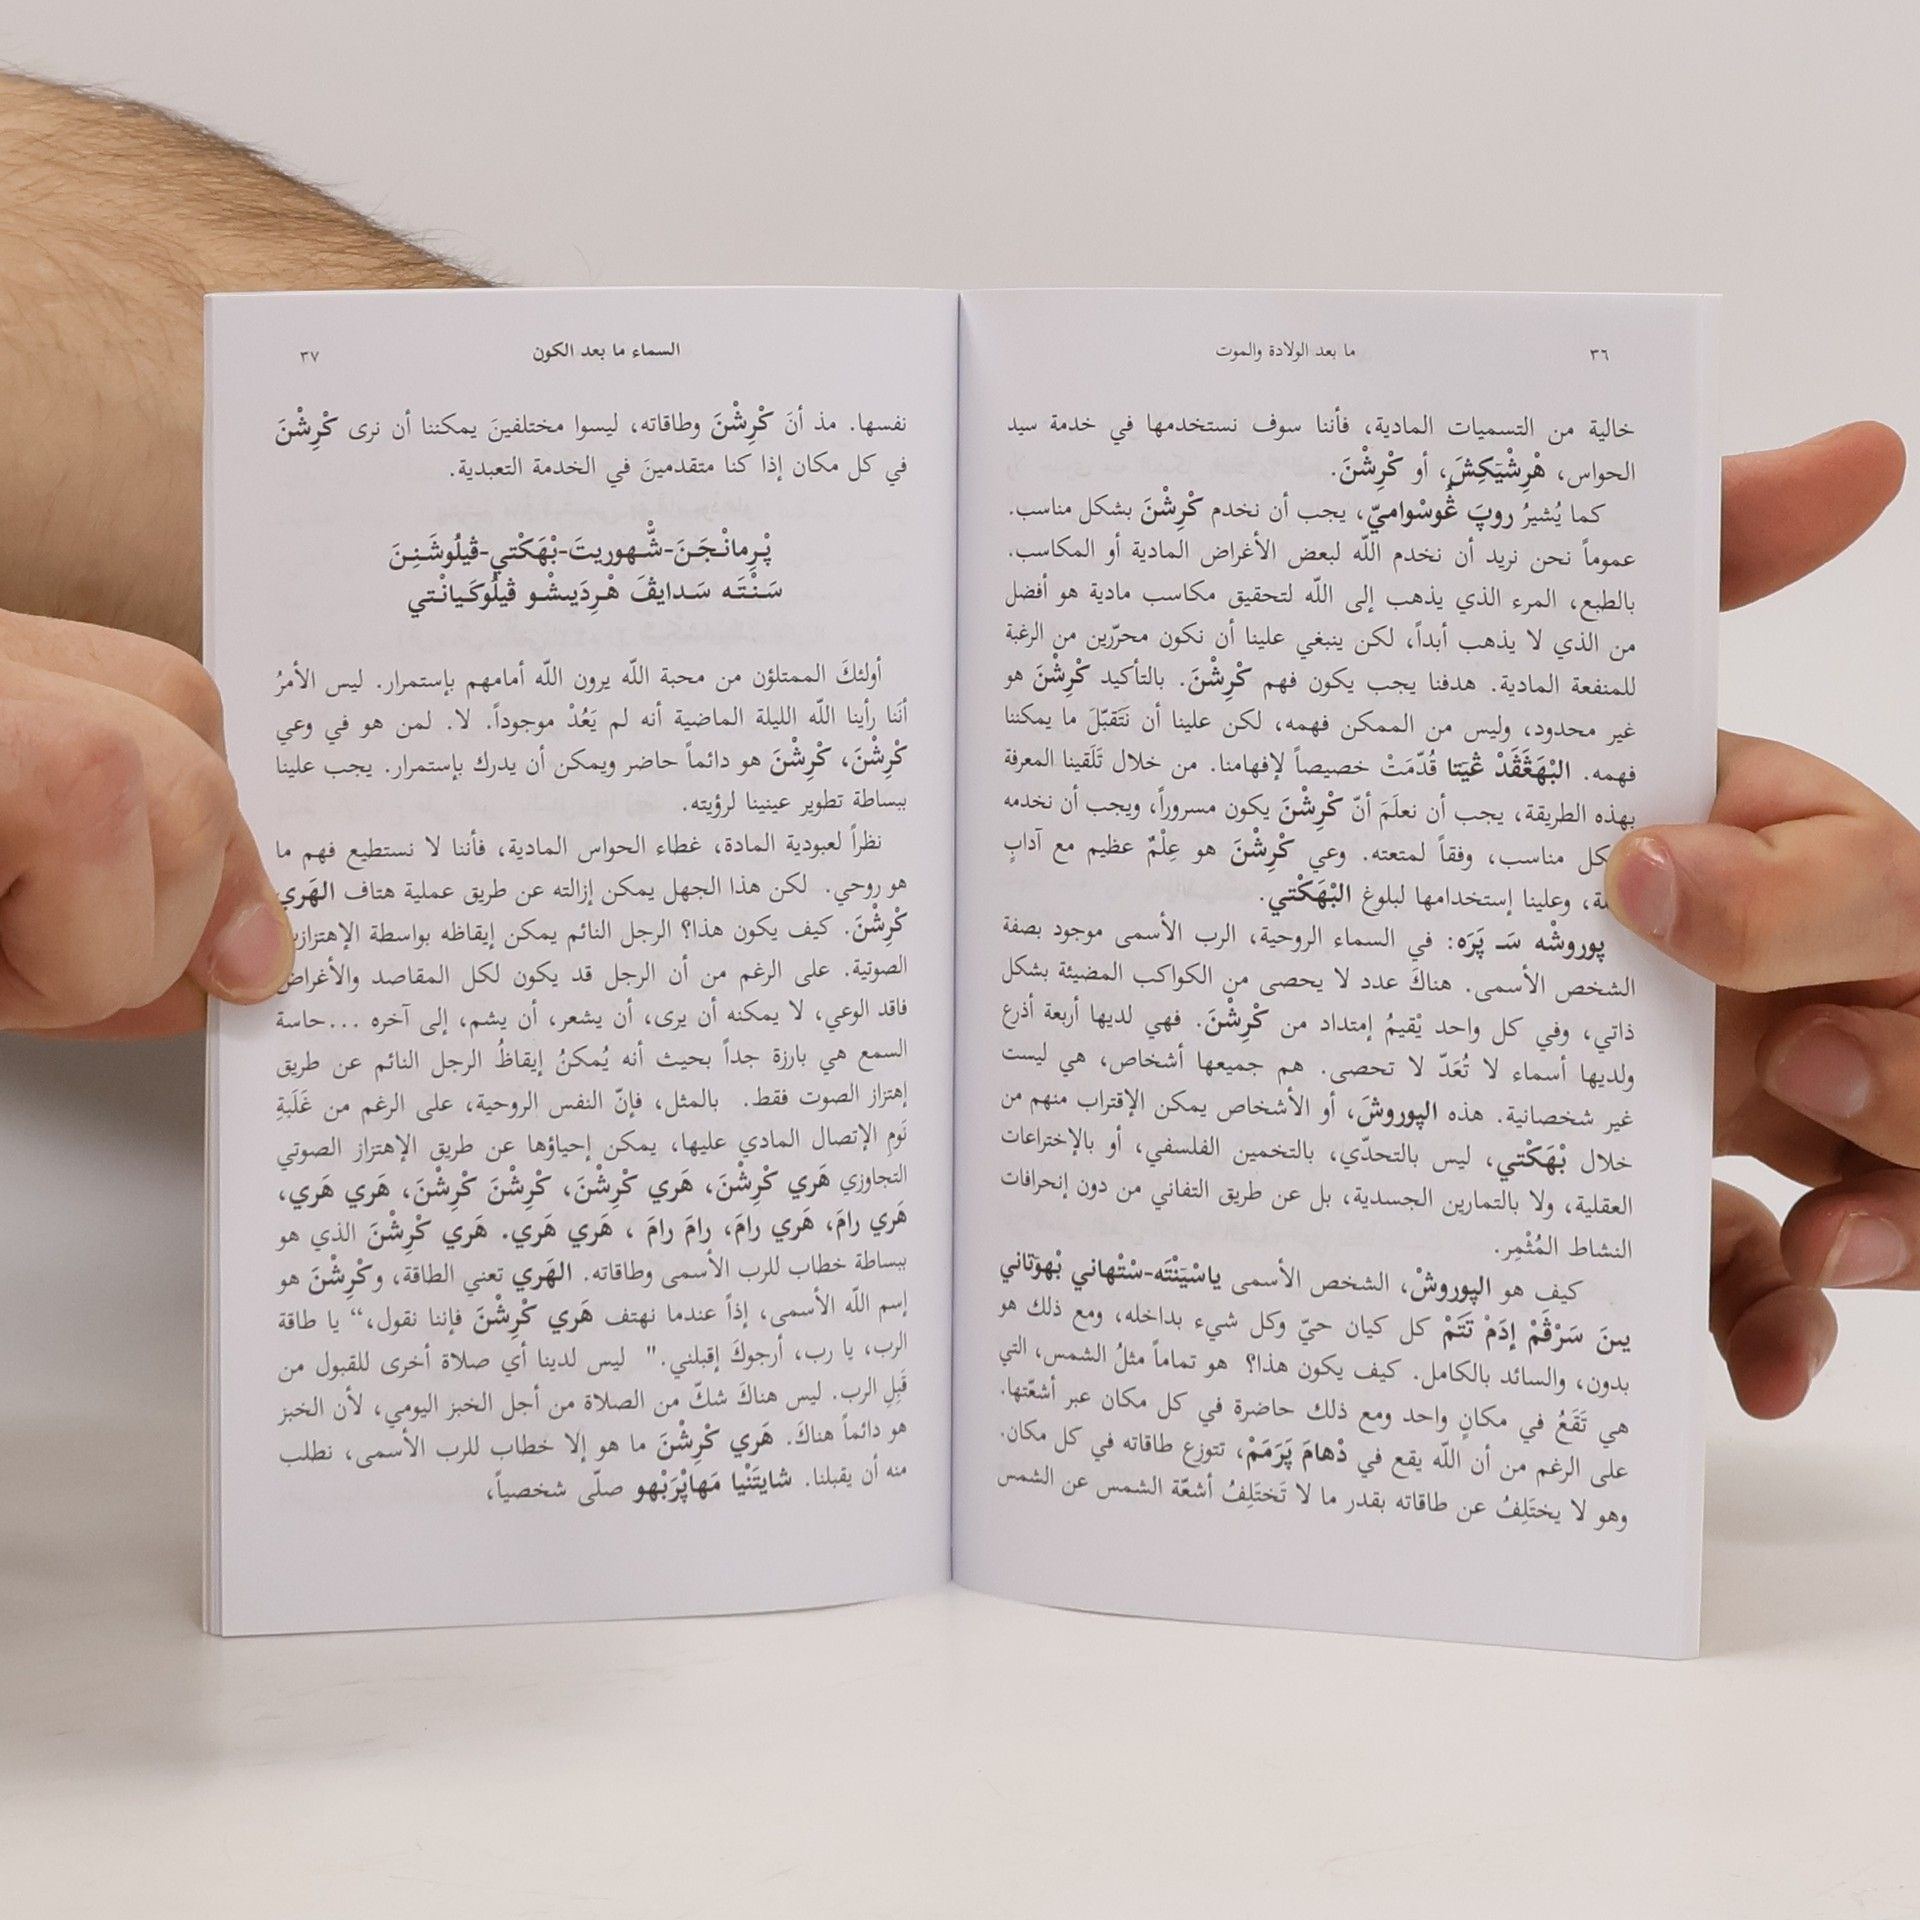 ٣٦
ما بعد الولادة والموت
خالية من التسميات المادية، فأننا سوف نستخدمها في خدمة سيد
الحواس، هْرِشْيَكِشَ، أو كْرِشْنَ.
كما يُشيرُ روپَ غُوسْواميّ، يجب أن نخدم كْرِشْنَ بشكل مناسب.
عموماً نحن نريد أن نخدم اللّه لبعض الأغراض المادية أو المكاسب.
بالطبع، المرء الذي يذهب إلى اللّه لتحقيق مكاسب مادية هو أفضل
من الذي لا يذهب أبداً، لكن ينبغي علينا أن نكون محرّرين من الرغبة
للمنفعة المادية. هدفنا يجب يكون فهم كْرِشْنَ. بالتأكيد كْرِشْنَ هو
غير محدود، وليس من الممكن فهمه، لكن علينا أن نَتَقبّلَ ما يمكننا
فهمه. البْهَغَڤَدْ غَيَتا قُدّمَتْ خصيصاً لإفهامنا. من خلال تَلَقينا المعرفة
بهذه الطريقة، يجب أن نعلَمَ أنّ كْرِشْنَ يكون مسروراً، ويجب أن نخدمه
مناسب، وفقاً لمتعته. وعي كْرِشْنَ هو عِلْمٌ عظيم مع آدابٍ
وعلينا إستخدامها لبلوغ البْهَكْتي.
پوروشْه سَـ پَرَه: في السماء الروحية، الرب الأسمى موجود بصفة
الشخص الأسمى. هناكَ عدد لا يحصى من الكواكب المضيئة بشكل
ذاتي، وفي كل واحد يْقيمُ إمتداد من كْرِشْنَ. فهي لديها أربعة أذرع
ولديها أسماء لا تُعَدّ لا تحصى. هم جميعها أشخاص، هي ليست
غير شخصانية. هذه الپوروشَ، أو الأشخاص يمكن الإقتراب منهم من
خلال بْهَكْتي، ليس بالتحدّي، بالتخمين الفلسفي، أو بالإختراعات
العقلية، ولا بالتمارين الجسدية، بل عن طريق التفاني من دون إنحرافات
النشاط المُثْمِر.
كيف هو الپوروشْ، الشخص الأسمى ياسْيَنْتَه-سْتْهاني بْهوَتاني
يىنَ سَرْڤَمْ إدَمْ تَتَمْ كل كيان حيّ وكل شيء بداخله، ومع ذلك هو
بدون، والسائد بالكامل. كيف يكون هذا؟ هو تماماً مثلُ الشمس، التي
هي تَقَعُ في مكانٍ واحد ومع ذلك حاضرة في كل مكان عبر أشعّتها.
على الرغم من أن اللّه يقع في دْهامَ پَرَمَمْ، تتوزع طاقاته في كل مكان.
وهو لا يختَلِفُ عن طاقاته بقدر ما لا تَختَلِفُ أشعّة الشمس عن الشمس
السماء ما بعد الكون
٣٧
نفسها. مذ أنَ كْرِشْنَ وطاقاته، ليسوا مختلفينَ يمكننا أن نرى كْرِشْنَ
في كل مكان إذا كنا متقدمينَ في الخدمة التعبدية.
پْرِمانْجَنَ-شّْهوريتَ-بْهَكْتي-ڤيلُوشَنِنَ
سَنْتَه سَدايڤَ هْرِدَيىشْو ڤيلُوكَيانْتي
أولئكَ الممتلؤن من محبة اللّه يرون اللّه أمامهم بإستمرار. ليس الأمرُ
أنَنا رأينا اللّه الليلة الماضية أنه لم يَعُدْ موجوداً. لا. لمن هو في وعي
كْرِشْنَ، كْرِشْنَ هو دائماً حاضر ويمكن أن يدرك بإستمرار. يجب علينا
ببساطة تطوير عينينا لرؤيته.
نظراً لعبودية المادة، غطاء الحواس المادية، فأننا لا نستطيع فهم ما
هو روحي. لكن هذا الجهل يمكن إزالته عن طريق عملية هتاف الهَري
كْرِشْنَ. كيف يكون هذا؟ الرجل النائم يمكن إيقاظه بواسطة الإهتزازت
الصوتية. على الرغم من أن الرجل قد يكون لكل المقاصد والأغراض
فاقد الوعي، لا يمكنه أن يرى، أن يشعر، أن يشم، إلى آخره ...حاسة
السمع هي بارزة جداً بحيث أنه يُمكنُ إيقاظُ الرجل النائم عن طريق
إهتزاز الصوت فقط. بالمثل، فإنّ النفس الروحية، على الرغم من غَلَبةِ
نَومِ الإتصال المادي عليها، يمكن إحياؤها عن طريق الإهتزاز الصوتي
التجاوزي هَري كْرِشْنَ، هَري كْرِشْنَ، كْرِشْنَ كْرِشْنَ، هَري هَري،
هَري رامَ، هَري رامَ، رامَ رامَ ، هَري هَري. هَري كْرِشْنَ الذي هو
ببساطة خطاب للرب الأسمى وطاقاته. الهَري تعني الطاقة، وكْرِشْنَ هو
إسم اللّه الأسمى، إذاً عندما نهتف هَري كْرِشْنَ فإننا نقول،“ يا طاقة
الرب، يا رب، أرجوكَ إقبلني." ليس لدينا أي صلاة أخرى للقبول من
قَبِلِ الرب. ليس هناكَ شكّ من الصلاة من أجل الخبز اليومي، لأن الخبز
هو دائماً هناكَ. هَري كْرِشْنَ ما هو إلا خطاب للرب الأسمى، نطلب
منه أن يقبلنا. شايتَنْيا مَهاپْرَبْهو صلّى شخصياً،